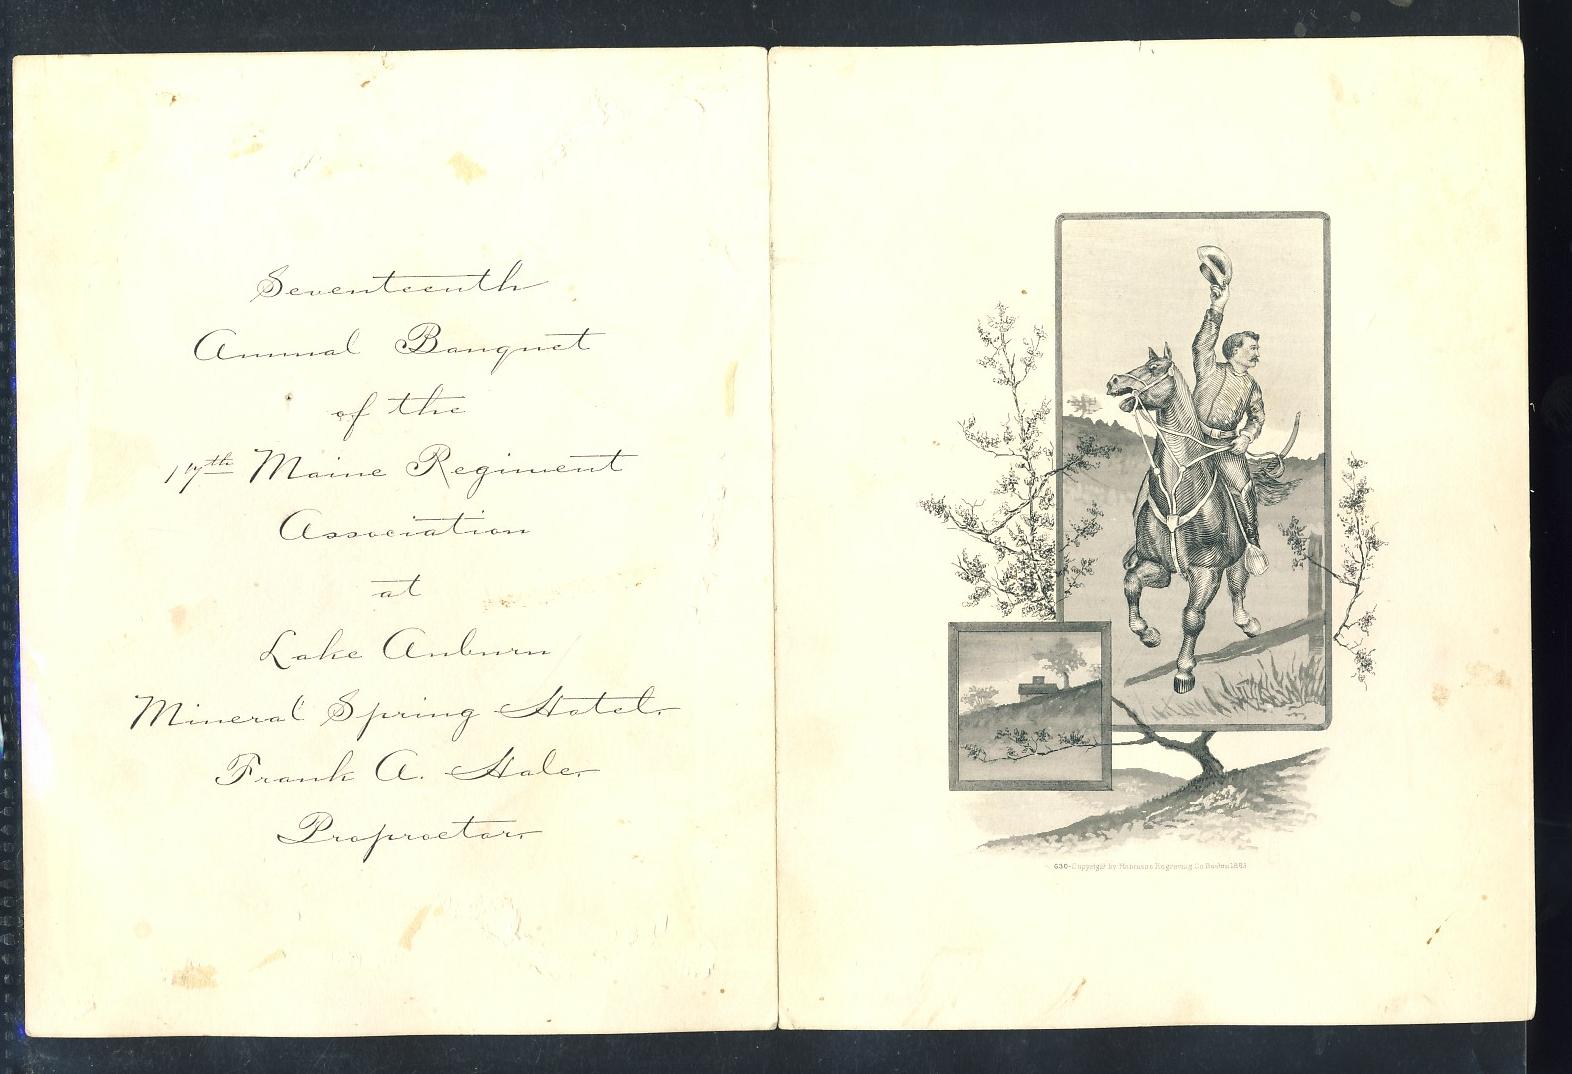 Seventeenth
Annual Banquet
of the
17th Maine Regiment
Association
at
Lake Auburn
Mineral Spring Hotel.
Frank A. Hale,
Proprietor.
630-Copyright by Engraving Co Boston 1883